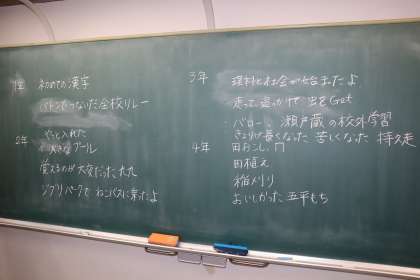 1年 初めての漢字
バトンをつないだ全校リレー
2年 やっと入れた
大きなプール
覚えるのが大変だった九九
ジブリパークで ねこバスに乗ったよ
3年 理科と社会が始まったよ
走って 追っかけて 虫をGet
・バロー、瀬戸蔵の校外学習
きょりが長くなった 苦しくなった 持久走
4年 田おこし
田植え
稲刈り
おいしかった 五平もち